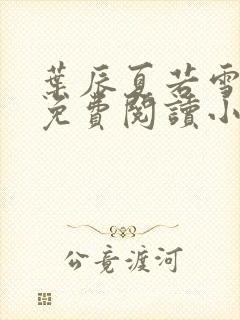 葉辰夏若雪
免費閱讀小
公竟渡河